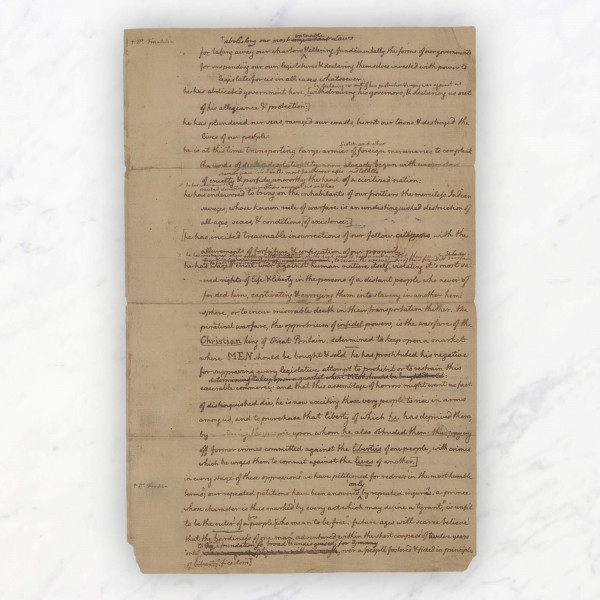 * Dr. Franklin
abolishing our most important valuable laws
for taking away our charters & altering fundamentally the forms of our governments
for suspending our own legislatures & declaring themselves invested with power to
legislate for us in all cases whatsoever.
he has abdicated government here, [withdrawing his governors, & declaring us out
of his allegiance & protection:]
he has plundered our seas, ravaged our coasts, burnt our towns & destroyed the
lives of our people:
he is at this time transporting large armies of foreign mercenaries to compleat
the works of death already begun with
of cruelty & perfidy unworthy the head of a civilized nation:
he has endeavored to bring on the inhabitants of our frontiers the merciless Indian
savages, whose known rule of warfare is an undistinguished destruction of
all ages, sexes, & conditions [of existence:]
[he has incited treasonable insurrections of our fellow citizens with the
allurements of forfeiture & confiscation of our property:
he has waged cruel war against human nature itself, violating it's most sa-
-cred rights of life & liberty in the persons of a distant people who never of-
fended him, captivating & carrying them into slavery in another hemi-
sphere, or to incur miserable death in their transportation thither. this
piratical warfare, the opprobrium of infidel powers, is the warfare of the
Christian king of Great Britain. determined to keep open a market
where MEN should be bought & sold he has prostituted his negative
for suppressing every legislative attempt to prohibit or to restrain this
determining to keep open a market where MEN should be bought & sold
execrable commerce: and that this assemblage of horrors might want no fact
of distinguished die, he is now exciting those very people to rise in arms
among us, and to purchase that liberty of which he has deprived them,
by murdering the people upon whom he also obtruded them: thus paying
off former crimes committed against the liberties of one people, with crimes
which he urges them to commit against the lives of another.]
in every stage of these oppressions we have petitioned for redress in the most humble
only
* Dr. Franklin
terms; our repeated petitions have been answered by repeated injuries. a prince
whose character is thus marked by every act which may define a tyrant, is unfit
free
to be the ruler of a people [who mean to be free. future ages will scarce believe
that the hardiness of one man, adventured within the short compass of twelve years
only, over a people fostered & fixed in principles
of liberty freedom]